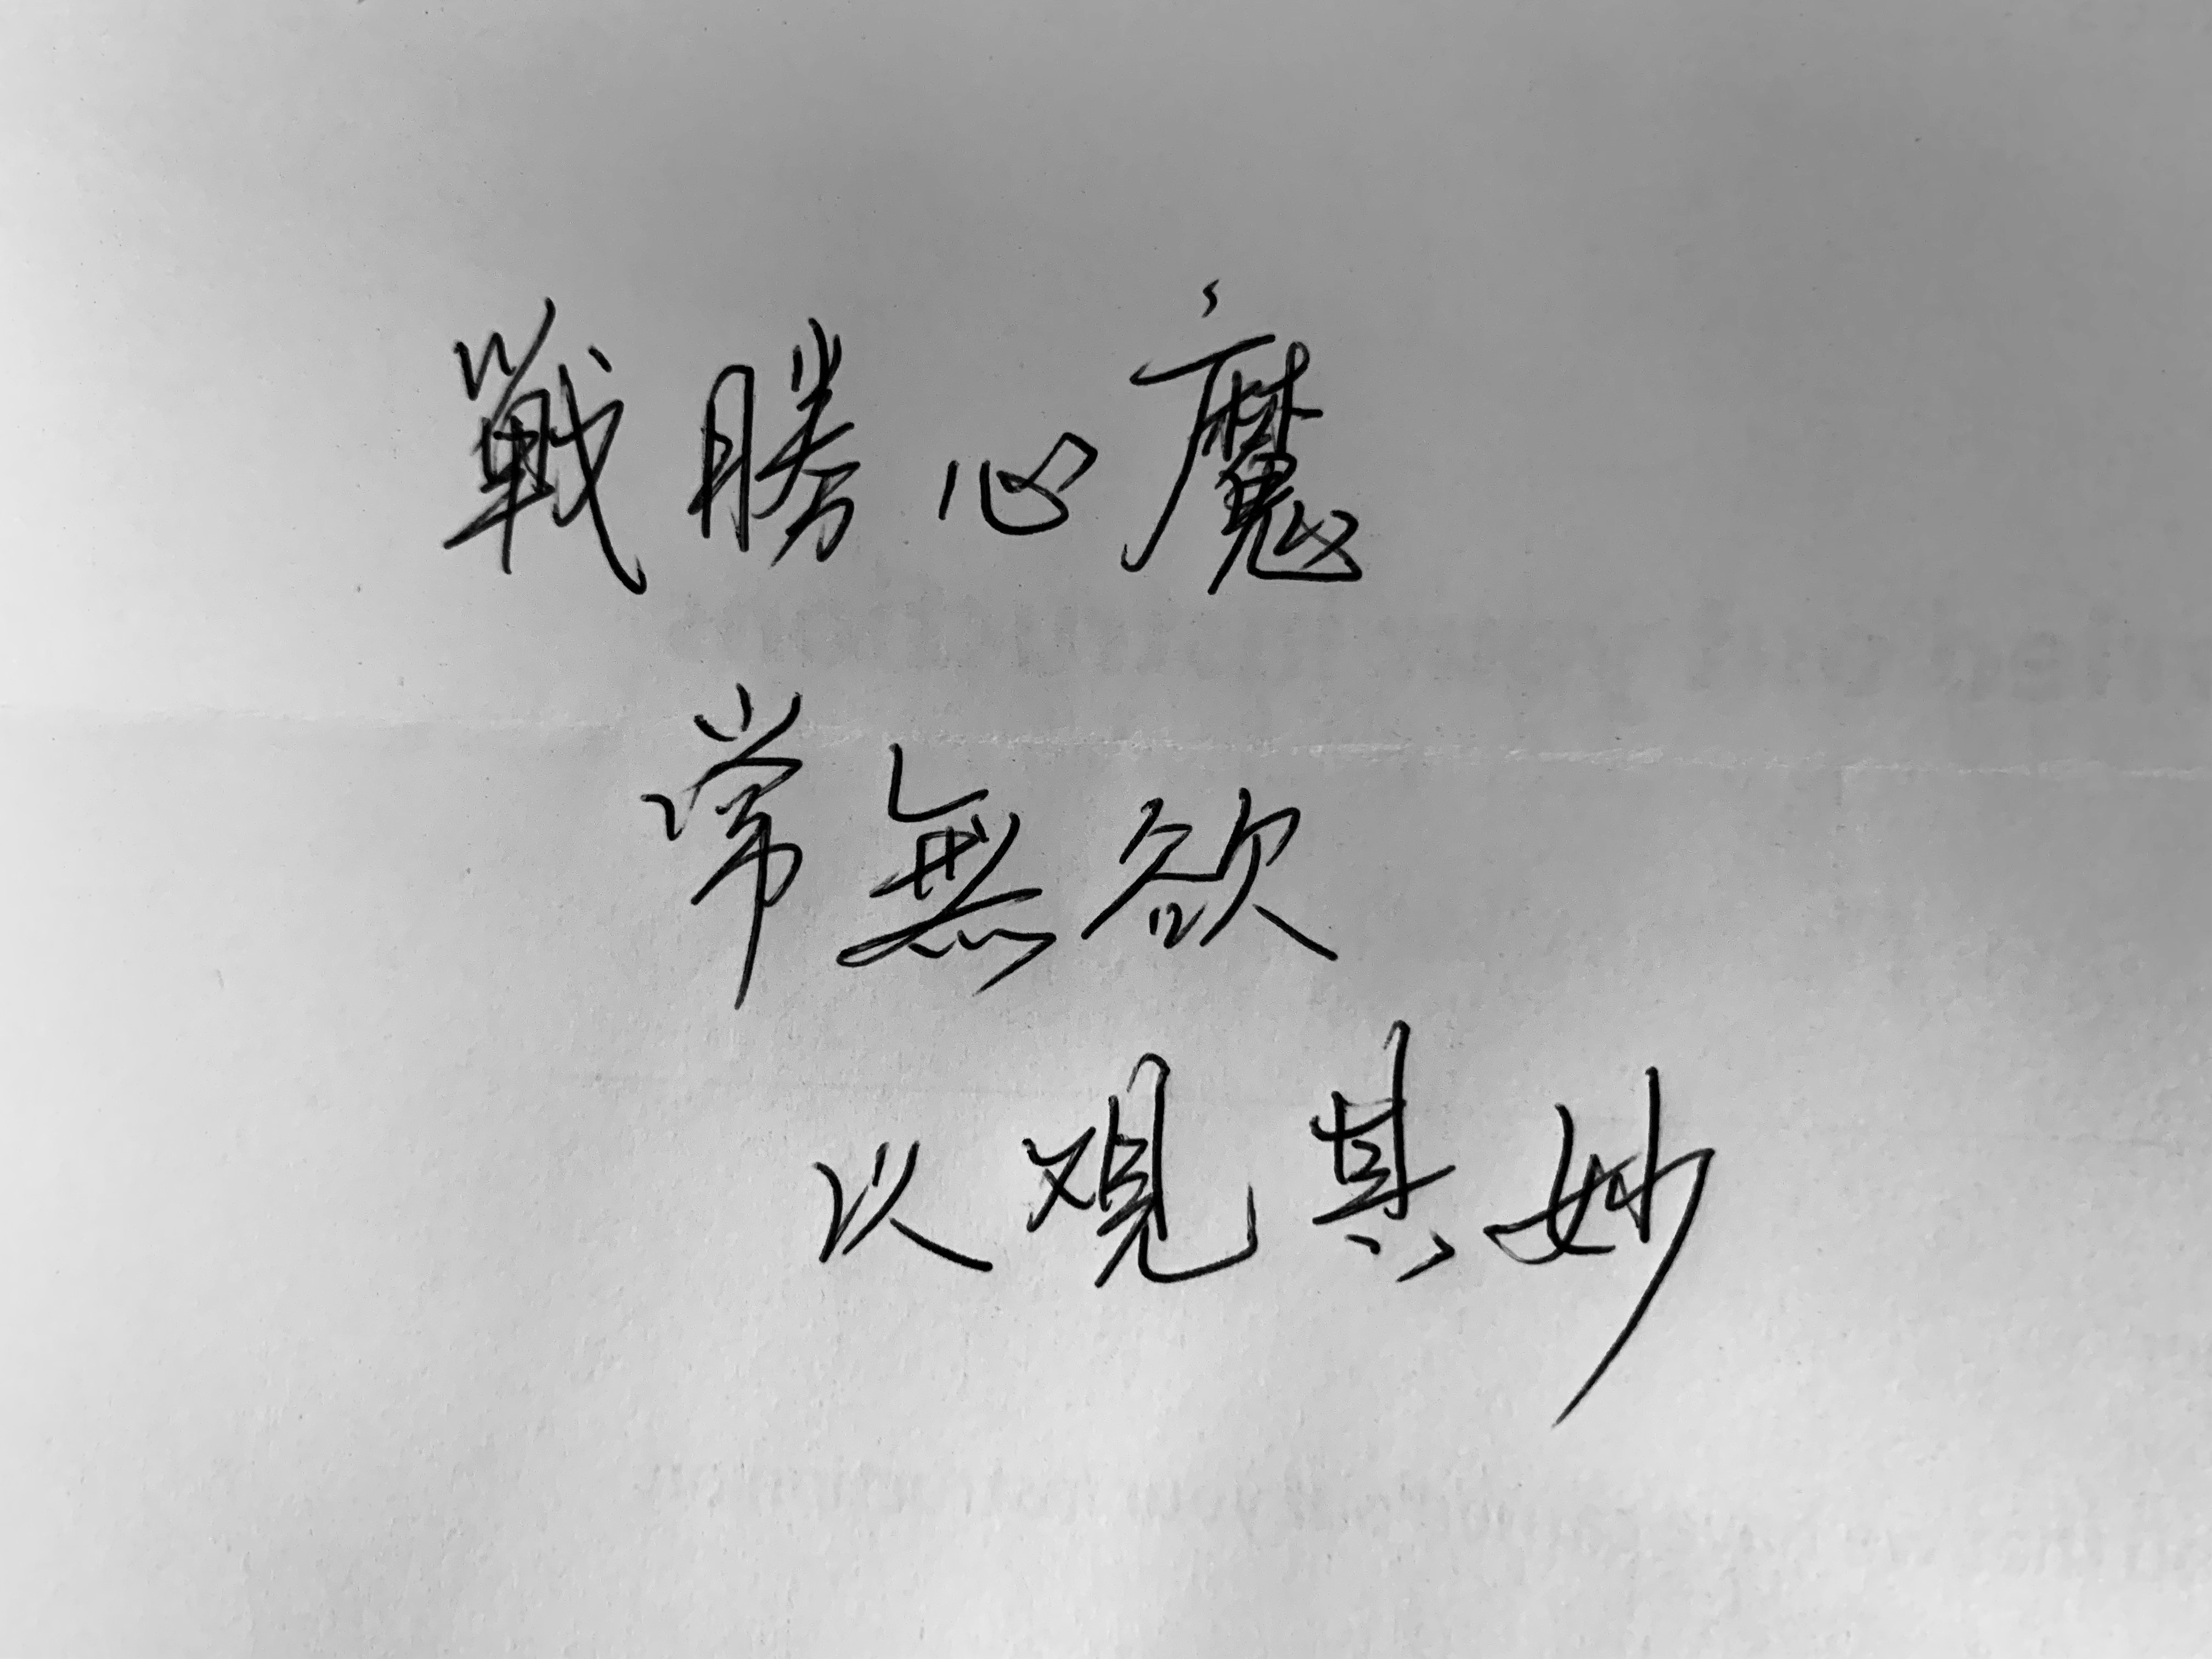 戰勝心魔
常無欲
以观其妙